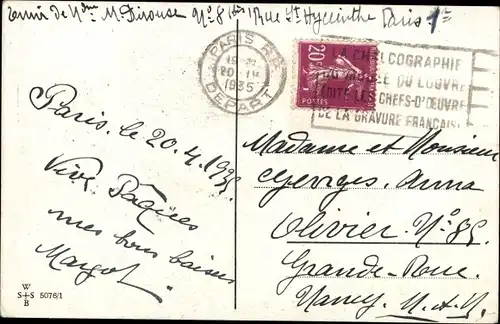 Envoi de Mme M. Pirouse No 8 bis Rue St Hyacinthe Paris 1er
PARIS R.P.
19 H
20 - IV
1935
DEPART
20c
POSTES
LA CHALCOGRAPHIE
DU MUSÉE DU LOUVRE
ÉDITE LES CHEFS-D'ŒUVRE
DE LA GRAVURE FRANÇAISE
Paris. le 20.4.1935
Vive Pâques
mes bons baisers
Margot
Madame et Monsieur
Georges. Anna
Olivier. No 85
Grande-Rue.
Nancy. M-et-M.
W
S+S 5076/1
B